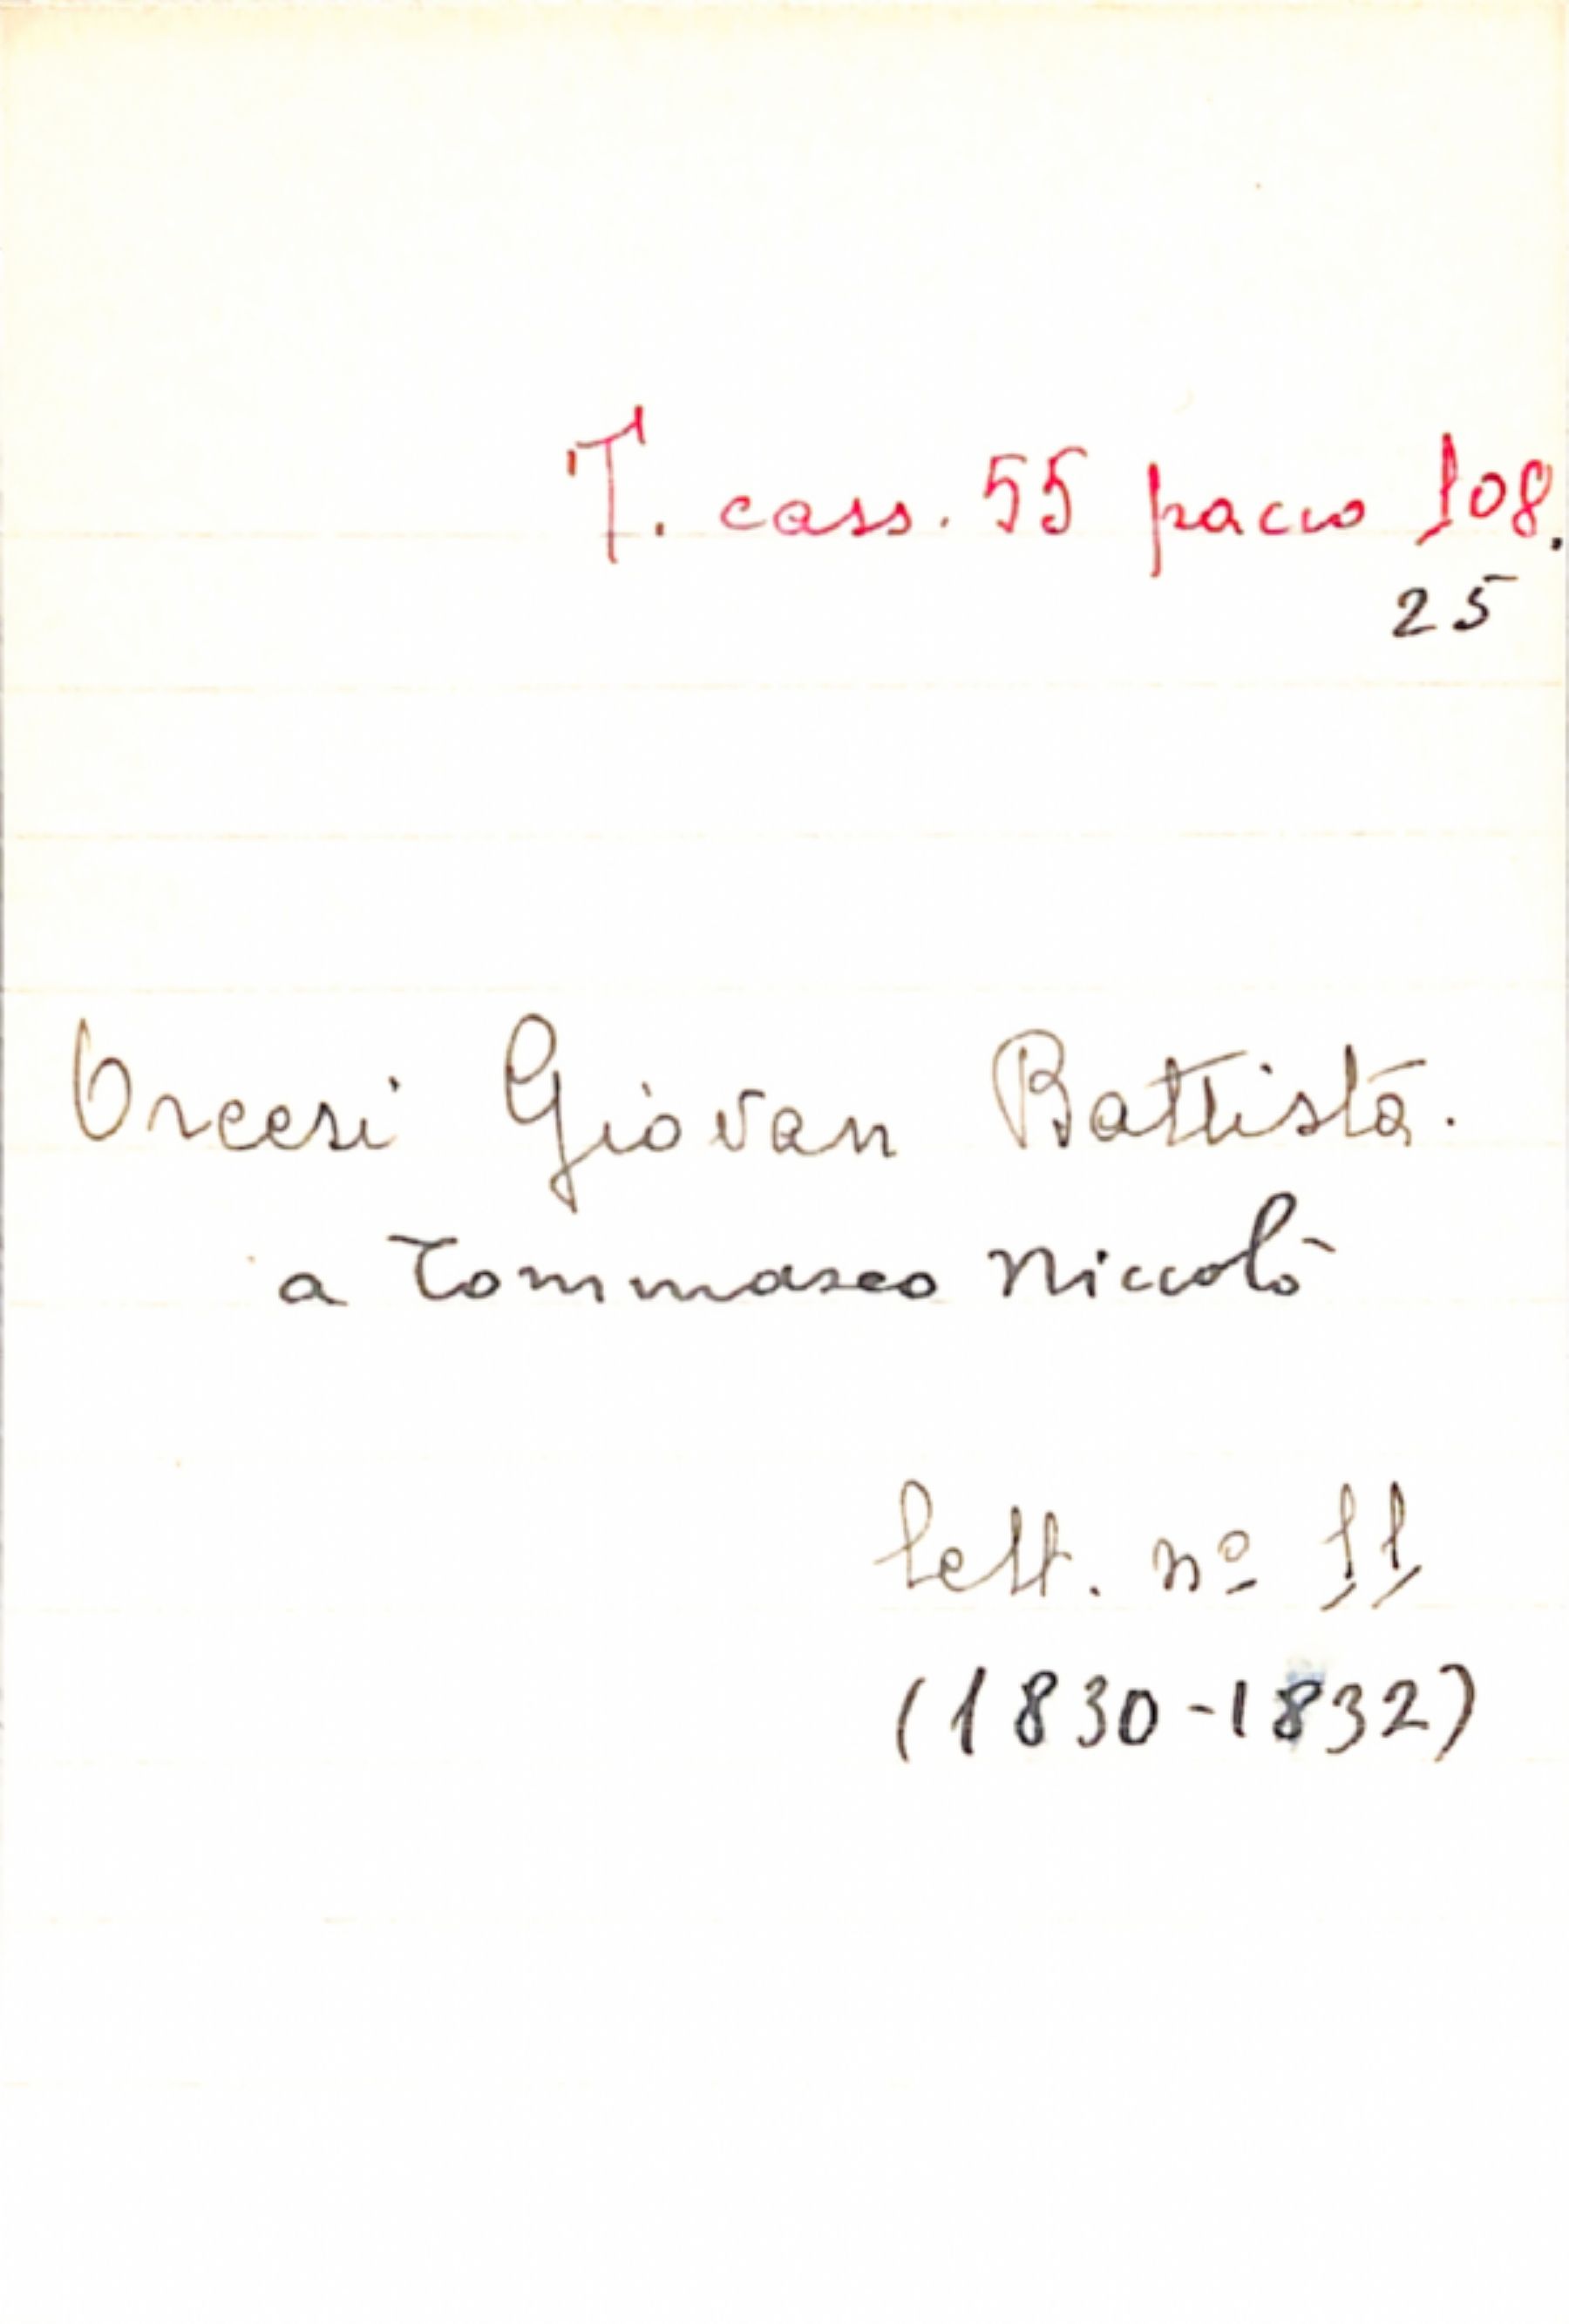 T. cass. 55 pacco 108.
25
Orcesi Giovan Battista.
a Tommaseo Niccolò
lett. nº 11
(1830-1832)